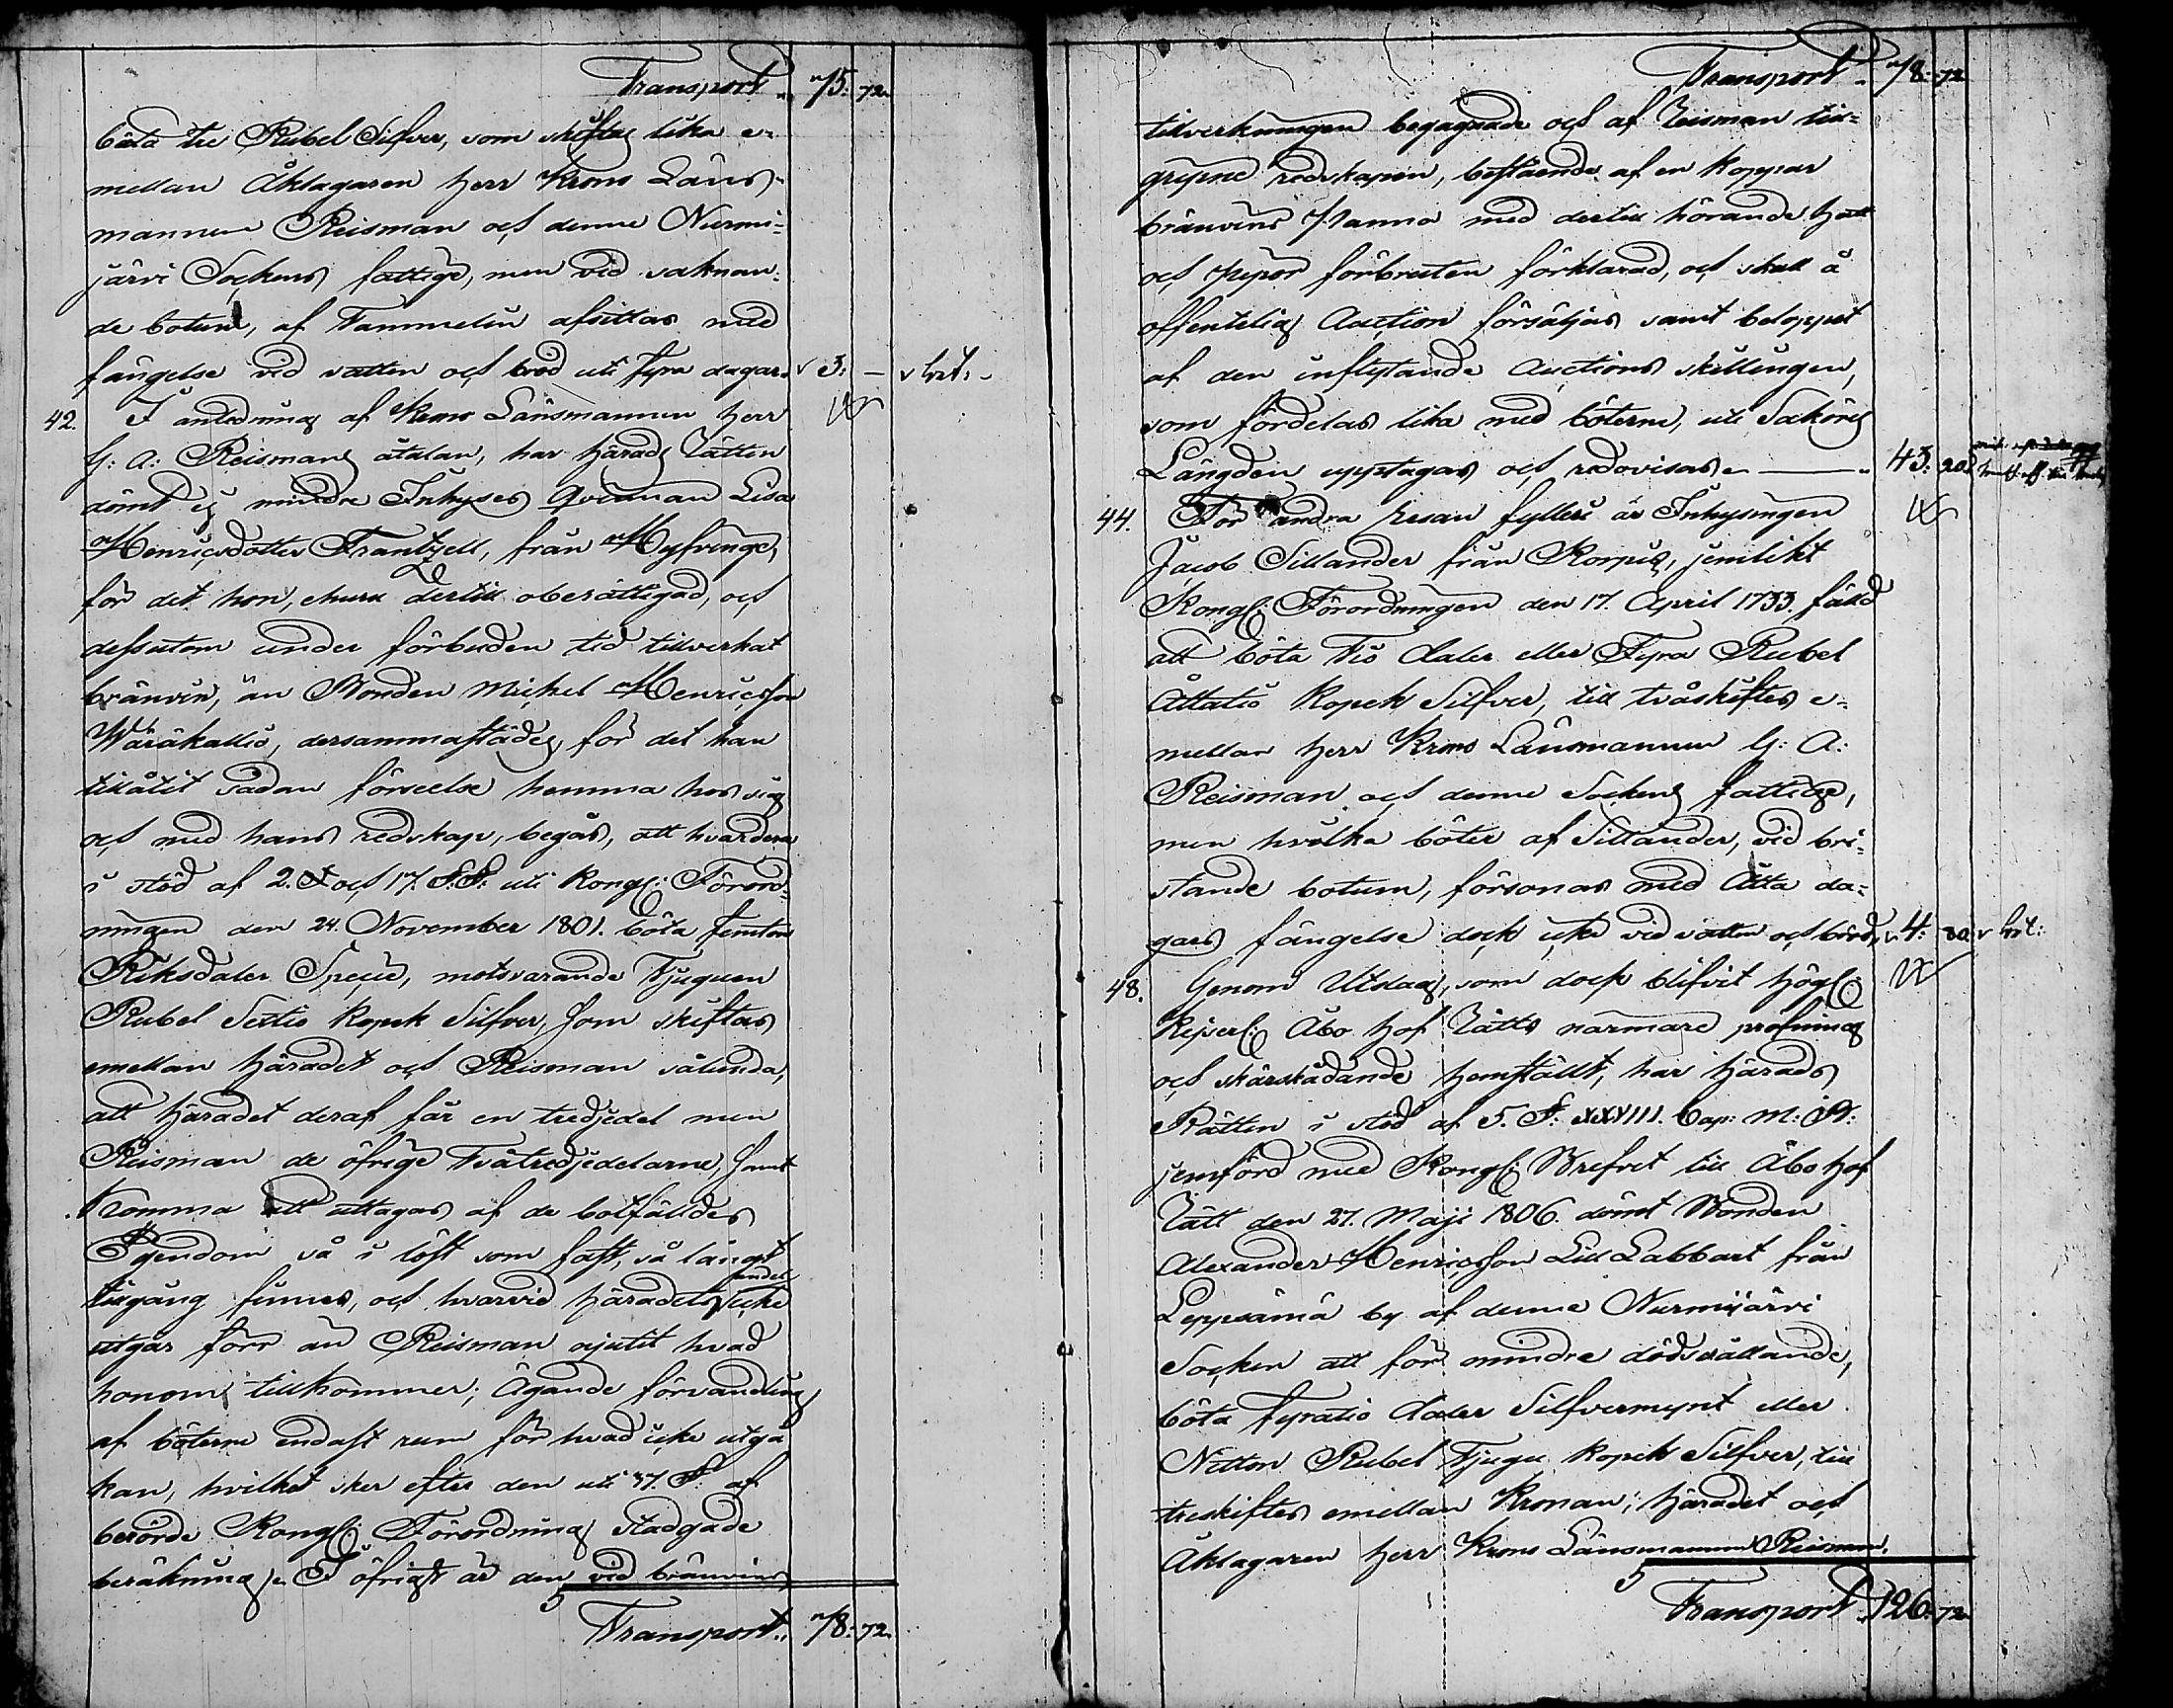 Transport. 75: 72.
böta tre Rubel Silfver, som skiftas lika e-
mellan Åklagaren Herr Krono Läns-
mannen Reisman och denne Nurmi-
järvi Sockens fattige, men vid saknan-
de botum, af Tammelin afsittas med
fängelse vid vatten och bröd uti fyra dagar. 3: —
42. I anledning af Krono Länsmannen Herr
G: A: Reismans åtalan, har Härads Rätten
dömt ej mindre Inhyses Qvinnan Lisa
Henricsdotter Frantzell, från Nyfvinge,
för det hon, ehuru dertill oberättigad, och
dessutom under förbuden tid tillverkat
bränvin, än Bonden Michel Henricsson
Wäräkallio, dersammastädes, för det han
tillåtit sådan förseelse hemma hos sig
och med hans redskap, begås, att hvardera
i stöd af 2. § och 17. §§: uti Kongl: Förord-
ningen den 24. November 1801. böta femton
Riksdaler Specie, motsvarande Tjuguen
Rubel Sextio Kopek Silfver, som skiftas
emellan Häradet och Reisman sålunda,
att Häradet deraf får en tredjedel men
Reisman de öfrige Tvåtredjedelarne, samt
komma att uttagas af de botfälldes
Egendom så i löst som fast, så långt
tillgång finnes, och hvarvid Häradets andel icke
utgår förr än Reisman njutit hvad
honom tillkommer; Ägande förvandling
af böterne endast rum för hvad icke utgå
kan, hvilket sker efter den uti 37. §: af
berörde Kongl: Förordning stadgade
beräkning. I öfrigt är den vid bränvins
Transport. 78: 72.
Transport. 78: 72
tillverkningen begagnade och af Reisman till-
gripne redskapen, bestående af en koppar
bränvins Panna med dertill hörande hatt
och pipor förbruten förklarad, och skall å
offentelig Auction försäljas samt beloppet
af den inflytande Auctions skillingen,
som fördelas lika med böterne, uti Saköres
Längden upptagas och redovisas. — 43: 20.
44. För andra resan fylleri är Inhysingen
Jacob Sillander från Korpis, jemlikt
Kongl: Förordningen den 17. April 1733. fälld
att böta Tio daler eller Fyra Rubel
Åttatio Kopek Silfver, till tvåskiftes e-
mellan Herr Krono Länsmannen G: A:
Reisman och denne Sockens fattige,
men hvilka böter af Sillander, vid bri-
stande botum, försonas med Åtta da-
gars fängelse dock icke vid vatten och bröd. 4: 80
48. Genom Utslag, som dock blifvit Högl:
Kejserl: Åbo Hof Rätts närmare pröfning
och skärskådande hemställt, har Härads
Rätten i stöd af 5. §: XXVIII. Cap: M: B:
jemförd med Kongl: Brefvet till Åbo Hof
Rätt den 27. Maji 1806. dömt Bonden
Alexander Henricsson Lill Labbart från
Leppsämä by af denne Nurmijärvi
Socken att för mindre dödsvållande,
böta fyratio daler Silfvermynt eller
Nitton Rubel Tjugu kopek Silfver, till
treskiftes emellan Kronan, Häradet och
Åklagaren Herr Krono Länsmannen Reisman.
Transport. 126: 72.